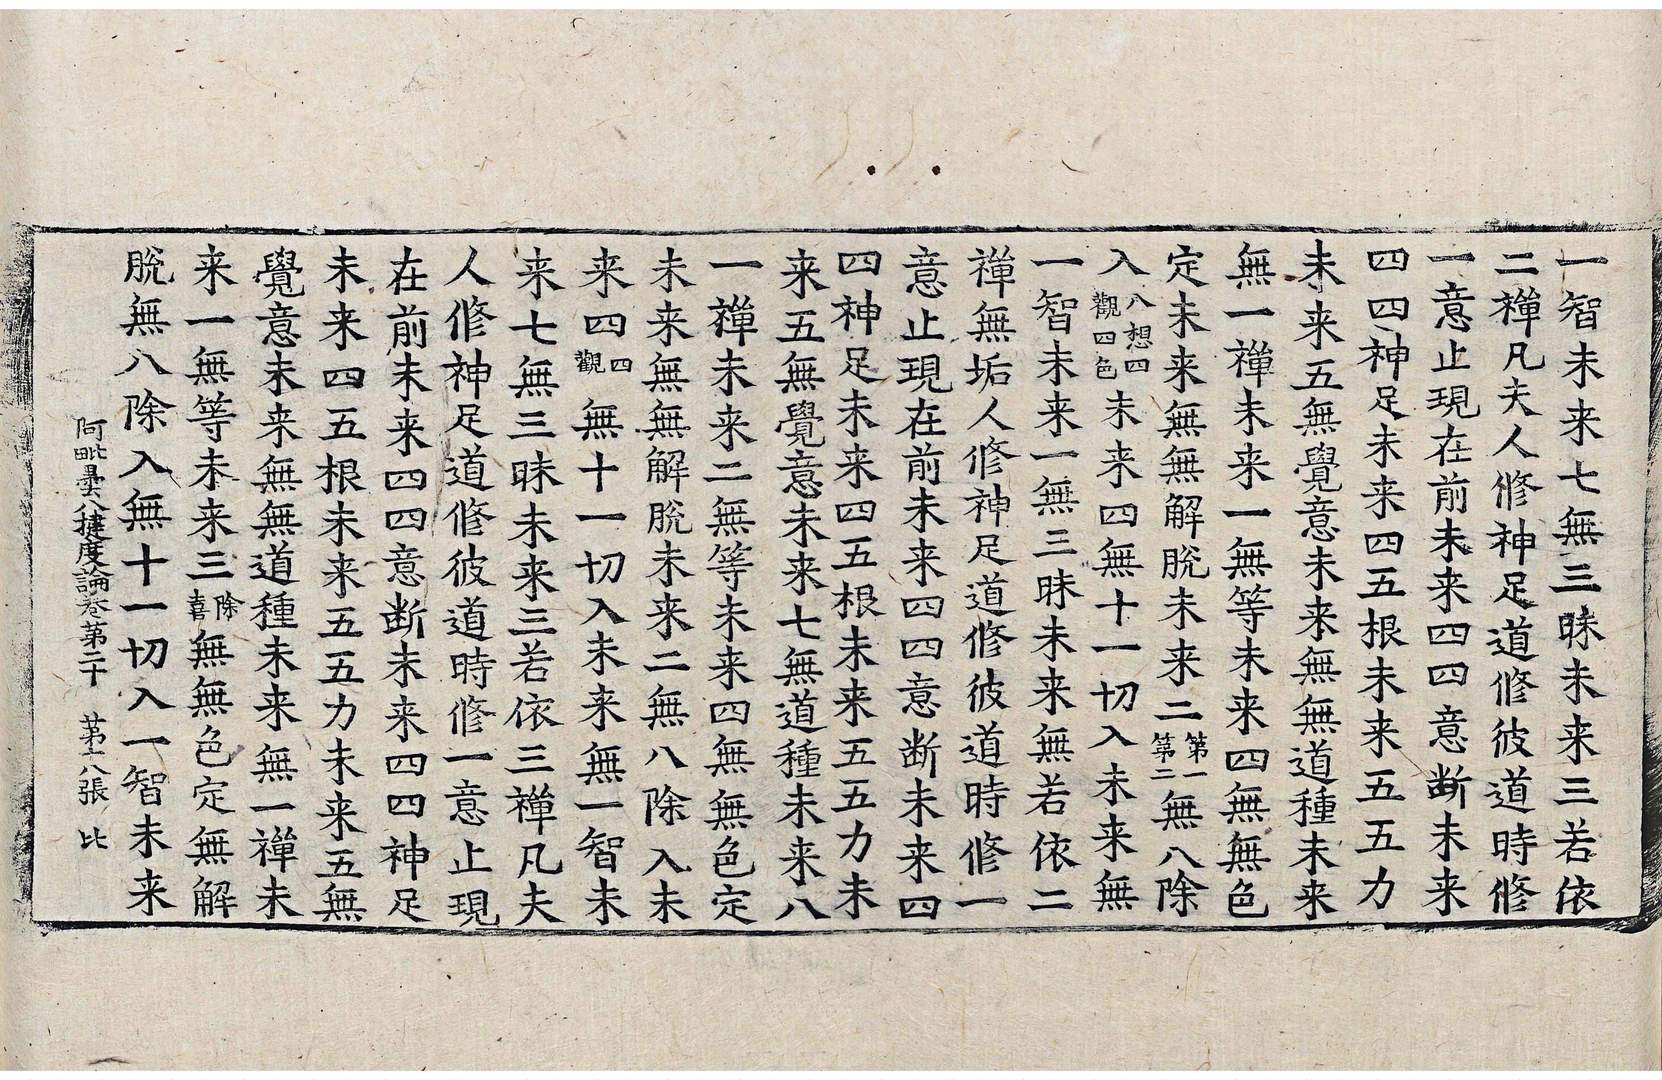 一智未来七無三昧未来三若依
二禪凡夫人修神足道修彼道時修
一意止現在前未来四四意断未来
四四神足未来四五根未来五五力
未来五無覺意未来無無道種未来
無一禪未来一無等未来四無無色
定未来無無解脫未来二第一第二無八除
入八想四觀四色未来四無十一切入未来無
一智未来一無三昧未来無若依二
禪無垢人修神足道修彼道時修一
意止現在前未来四四意断未来四
四神足未来四五根未来五五力未
来五無覺意未来七無道種未来八
一禪未来二無等未来四無無色定
未来無無解脫未来二無八除入未
来四四觀無十一切入未来無一智未
来七無三昧未来三若依三禪凡夫
人修神足道修彼道時修一意止現
在前未来四四意断未来四四神足
未来四五根未来五五力未来五無
覺意未来無無道種未来無一禪未
来一無等未来三除喜無無色定無解
脫無八除入無十一切入一智未来
阿毗曇八揵度論卷第二十 第十八張 比